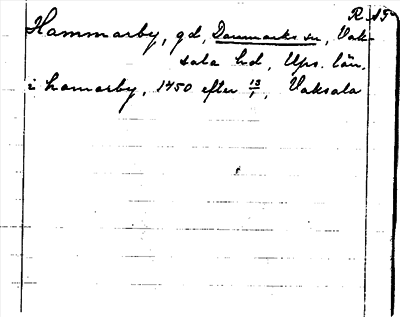 R. 15
Hammarby, gd, Danmarks sn, Vak-
sala hd, Ups. län.
i hamarby, 1450 efter 13/1, Vaksala